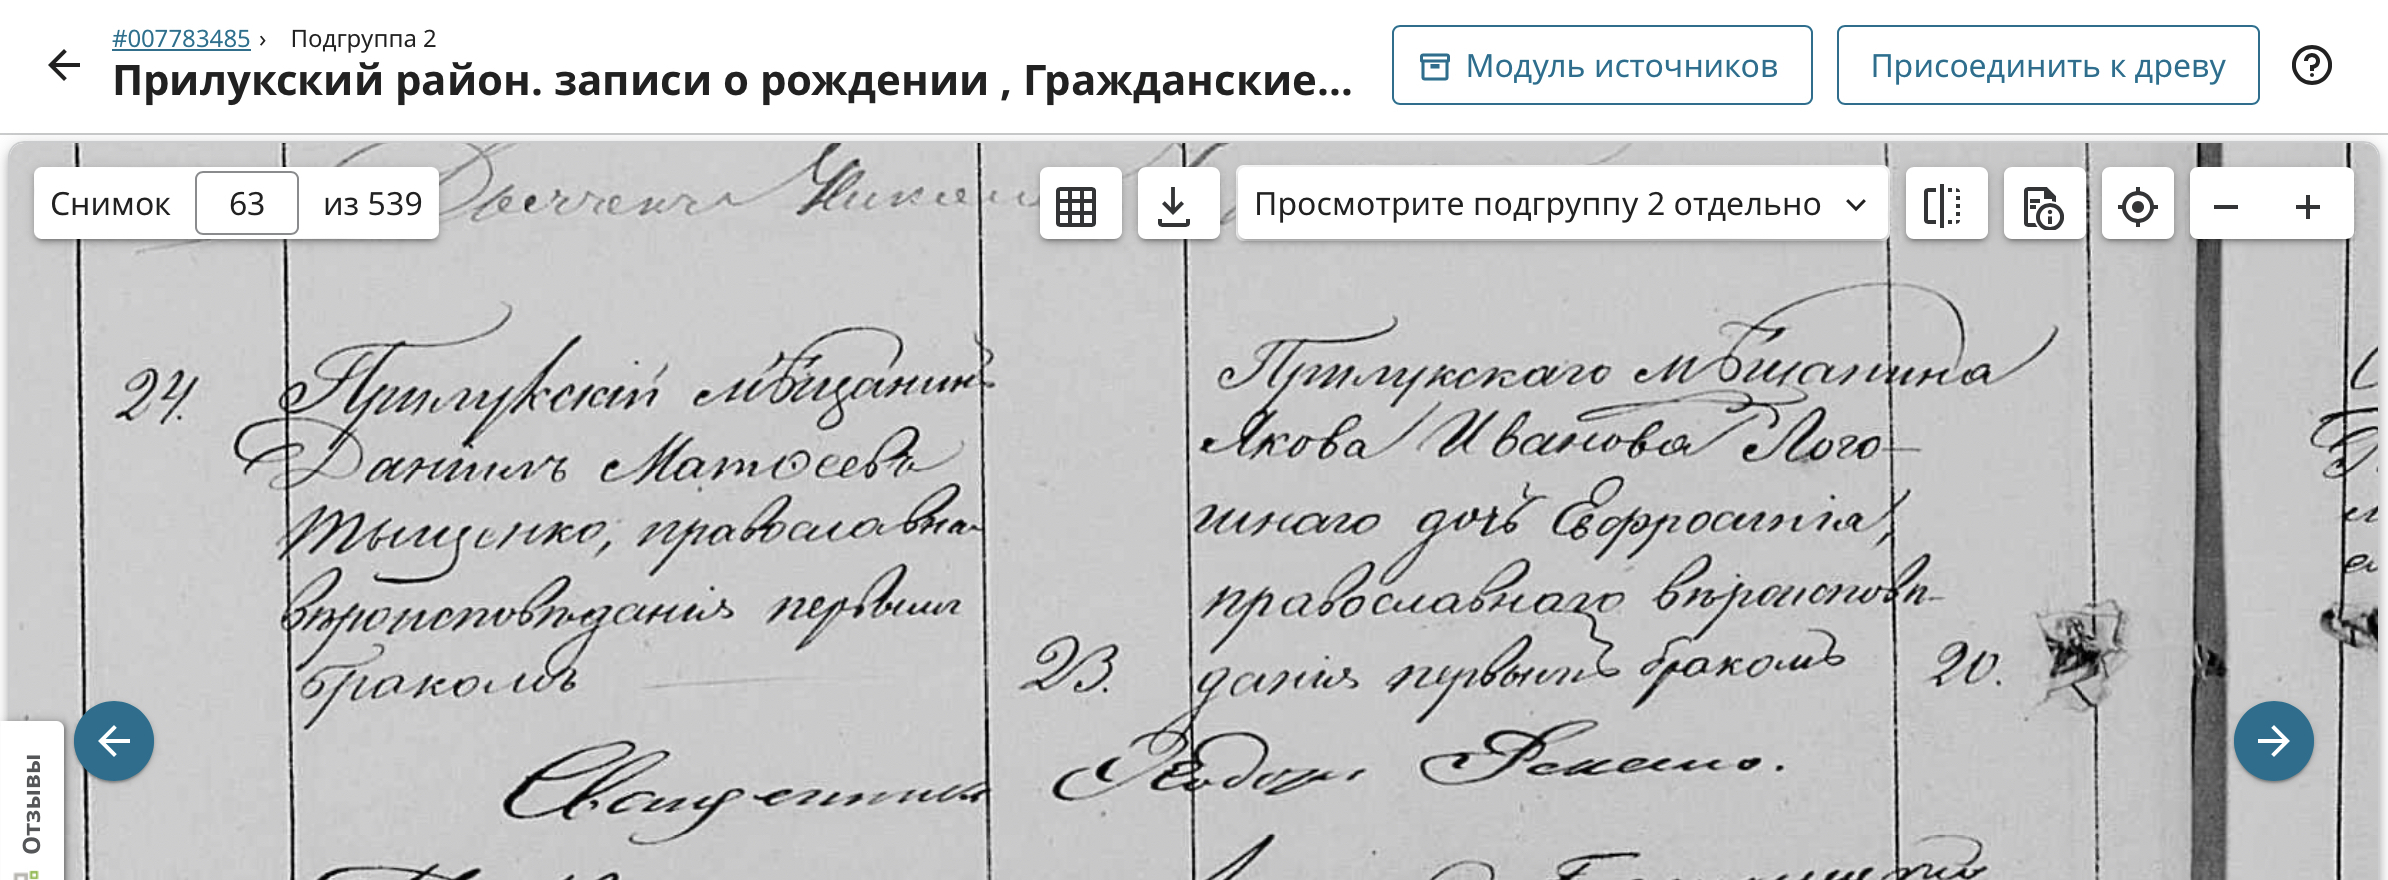 #007783485 › Подгруппа 2
Прилукский район. записи о рождении , Гражданские...
Модуль источников
Присоединить к древу
Снимок 63 из 539
Просмотрите подгруппу 2 отдельно
24.
Прилукскій мѣщанинъ
Даніилъ Матѳеевъ
Тыщенко, православна
вѣроисповѣданія первымъ
бракомъ
23.
Прилукскаго мѣщанина
Якова Иванова Лого-
шнаго дочь Евфросинія,
православнаго вѣроисповѣ-
данія первымъ бракомъ
20.
Священникъ Ѳеодоръ
Отзывы